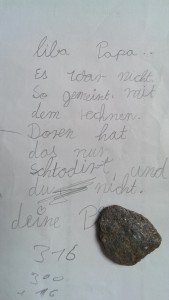 liba Papa..
Es war nicht
So gemeint. mit
dem rechnen.
Doren hat
das nur
Schtodirt und
du nicht.
deine
316
300
+ 16